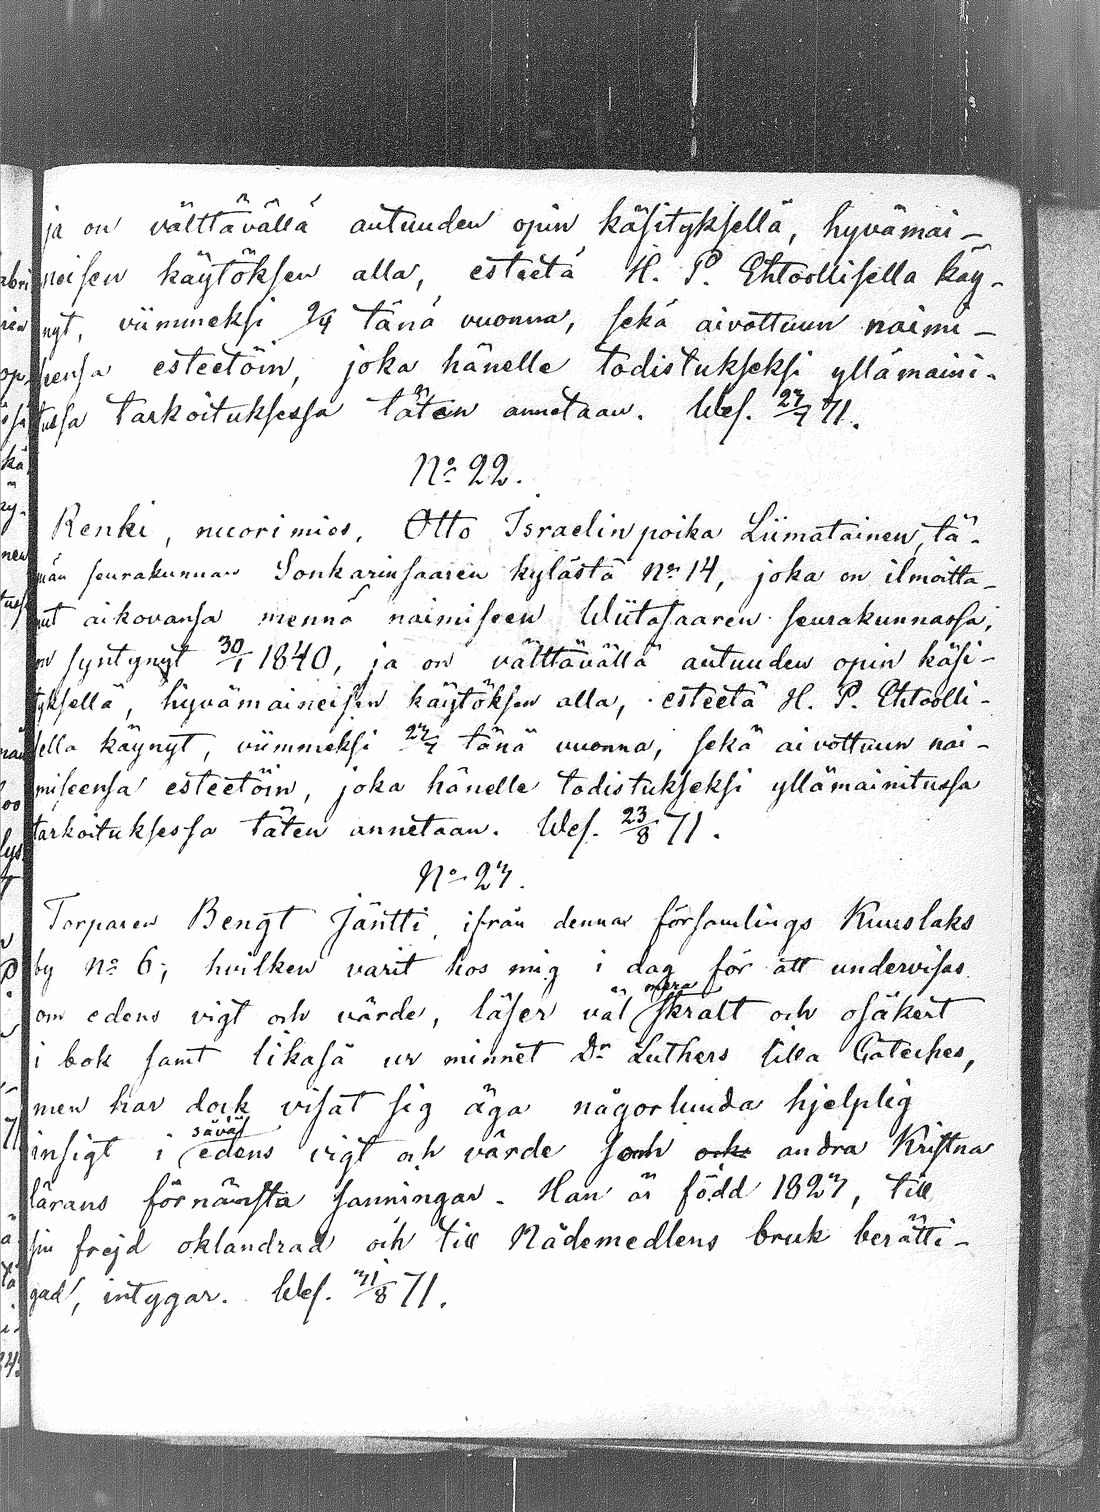 ja on välttävällä autuuden opin käsityksellä, hyvämai-
neisen käytöksen alla, esteetä H. P. Ehtoollisella käy-
nyt, viimmeksi 2/4 tänä vuonna, sekä aivottuun naimi-
seensa esteetöin, joka hänelle todistukseksi yllämaini-
tussa tarkoituksessa täten annetaan. Wes. 27/7 71.
No 22.
Renki, nuorimies, Otto Israelinpoika Liimatainen, tä-
män seurakunnan Sonkarinsaaren kylästä No 14, joka on ilmoitta-
nut aikovansa mennä naimiseen Wiitasaaren seurakunnassa,
on syntynyt 30/1 1840, ja on välttävällä autuuden opin käsi-
tyksellä, hyvämaineisen käytöksen alla, esteetä H. P. Ehtoolli-
sella käynyt, viimmeksi 23/4 tänä vuonna, sekä aivottuun nai-
miseensa esteetöin, joka hänelle todistukseksi yllämainitussa
tarkoituksessa täten annetaan. Wes. 23/8 71.
No 23.
Torparen Bengt Jäntti, ifrån denna församlings Kuuslaks
by No 6, hvilken varit hos mig i dag för att undervisas
om edens vigt och värde, läser väl mera skralt och osäkert
i bok samt likaså ur minnet Dr Luthers lilla Cateches,
men har dock visat sig äga någorlunda hjelplig
insigt i såväl edens vigt och värde som och andra Kristna
lärans förnämsta sanningar. Han är född 1823, till
sin frejd oklandrad och till Nådemedlens bruk berätti-
gad, intygar. Wes. 31/8 71.